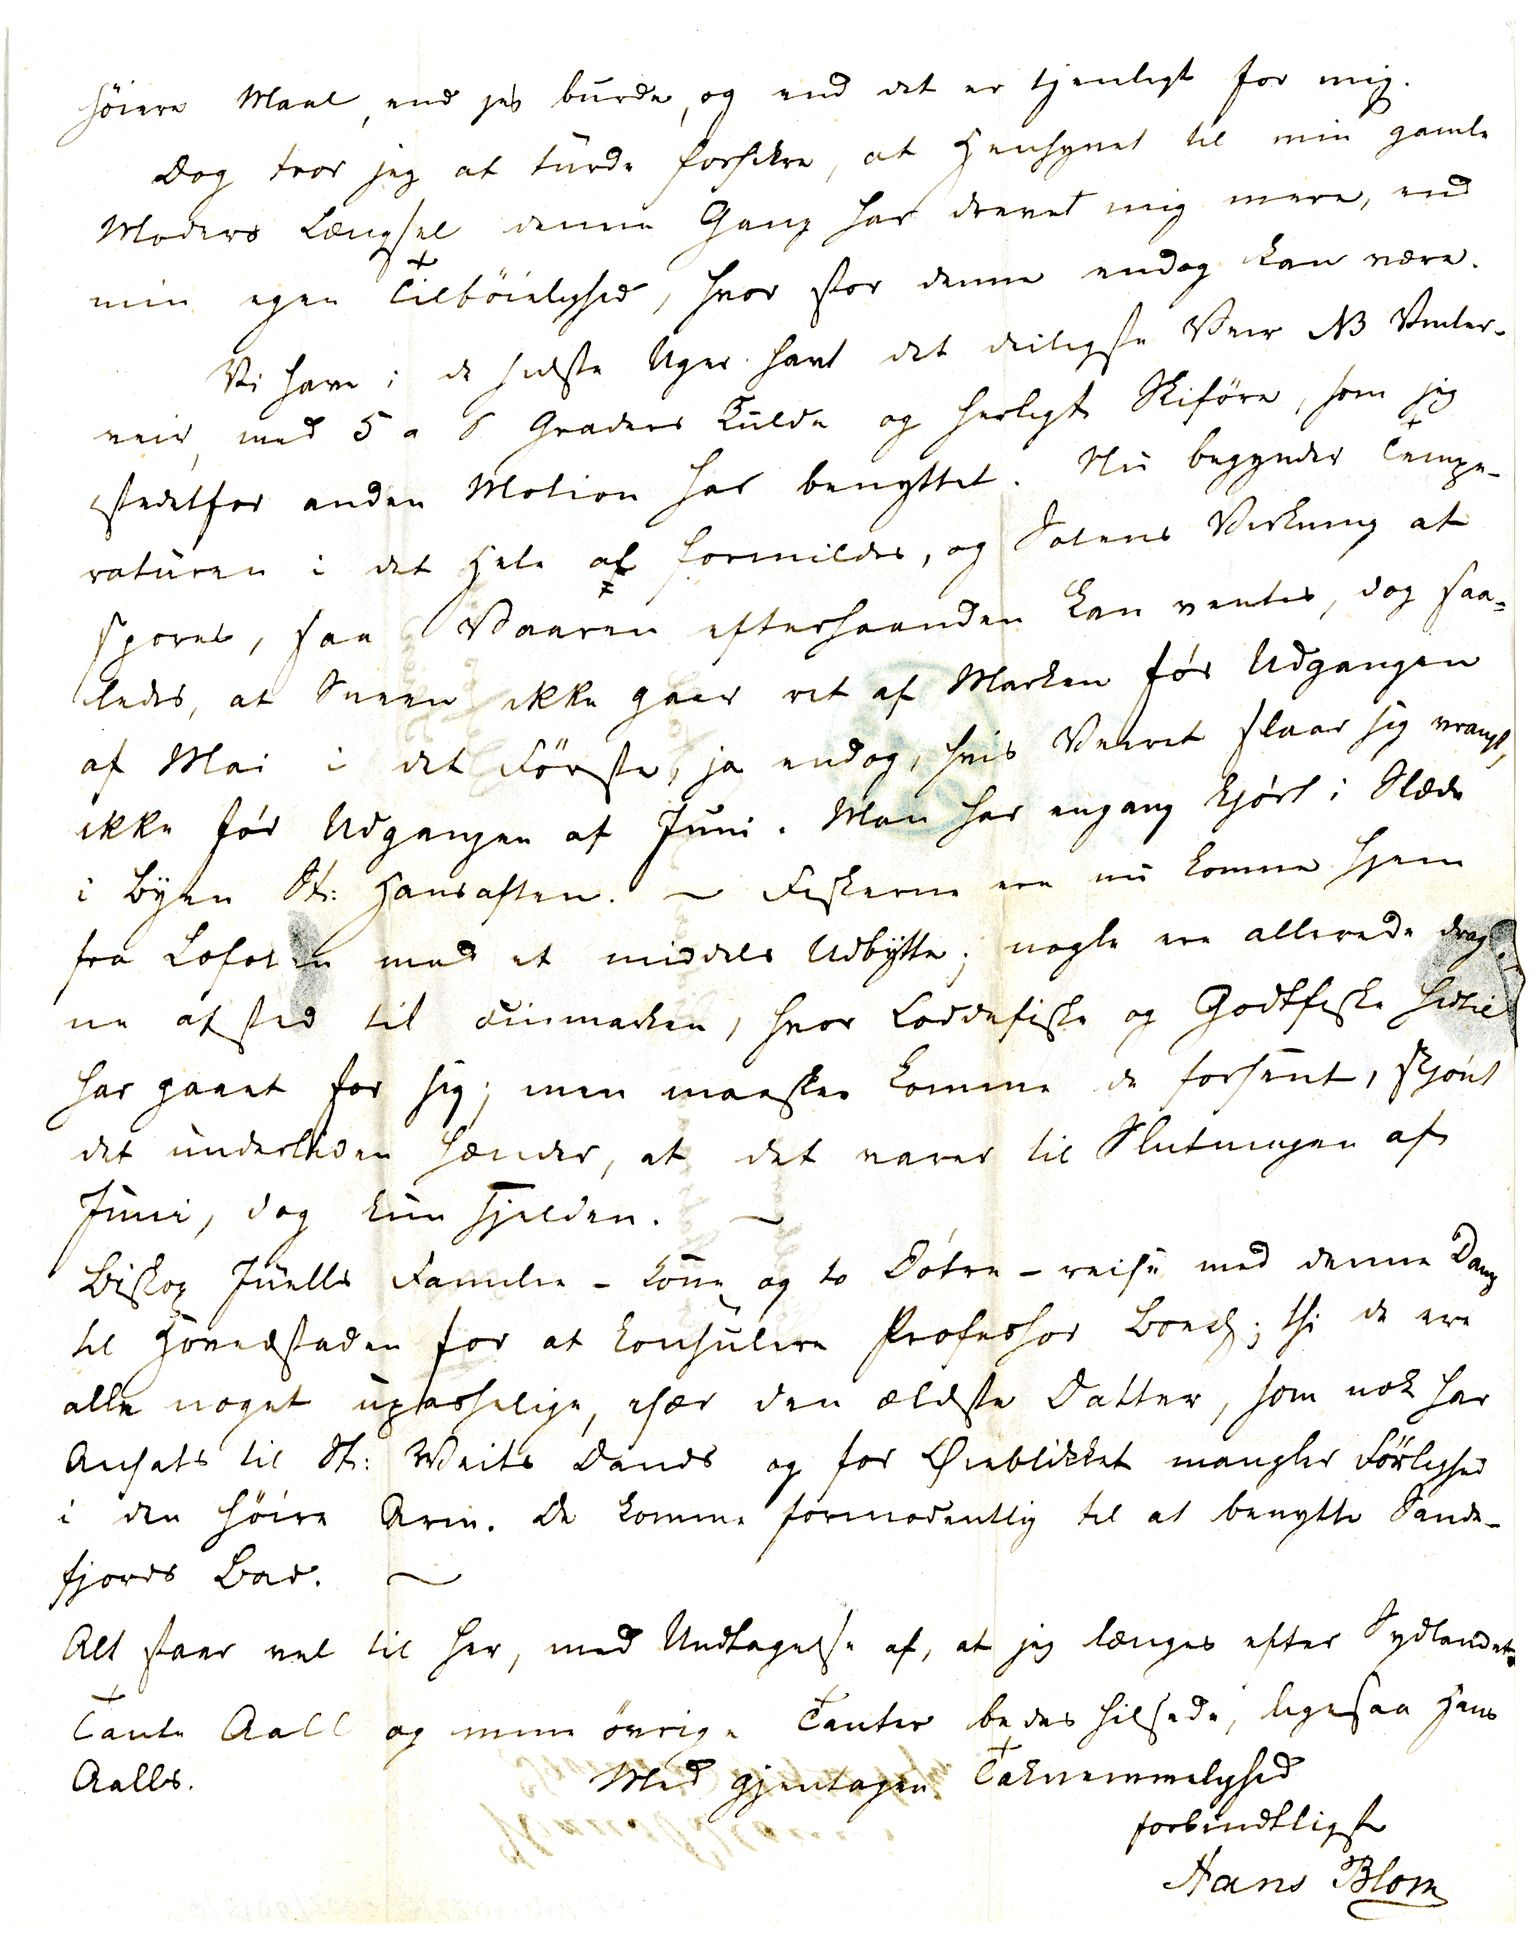 höiere Maal, end jeg burde, og end det er tjenligt for mig.
Dog tror jeg at turde forsikre, at Hensynet til min gamle
Moders Længsel denne Gang har drevet mig mere, end
min egen Tilböielighed, hvor stor denne endog kan være.
Vi have i de sidste Uger havt det deiligste Veir NB Vinter-
veir, med 5 a 6 Graders Kulde og herligt Skiföre, som jeg
istedetfor anden Motion har benyttet. Nu begynder Tempe-
raturen i det Hele at formildes, og Solens Virkning at
spores, saa Vaaren efterhaanden kan ventes, dog saa-
ledes, at Sneen ikke gaar ret af Marken før Udgangen
af Mai i det Förste, ja endog, hvis Veiret slaar sig vrangt,
ikke før Udgangen af Juni. Man har engang kjørt i Slæde
i Byen St: Hansaften. ~ Fiskerne ere nu komne hjem
fra Lofoten med et middels Udbytte; nogle ere allerede drag-
ne afsted til Finmarken, hvor Loddefiske og Godtfiske hidtil
har gaaet for sig; men maaskee komme de forsent, skjönt
det undertiden hænder, at det varer til Slutningen af
Juni, dog kun sjelden. ~
Biskop Juells Familie - Kone og to Døtre - reise med denne Damp
til Hovedstaden for at konsulere Professor Boeck; thi de ere
alle noget upasselige, især den ældste Datter, som nok har
Ansats til St: Weits Dands og for Øieblikket mangler Förlighed
i den höire Arm. De komme formodentlig til at benytte Sande-
fjords Bad. ~
Alt staar vel til her, med Undtagelse af, at jeg længes efter Sydlandet.
Tante Aall og mine övrige Tanter bedes hilsede, ligesaa Hans
Aalls.
Med gjentagen Taknemmelighed
forbindtligst
Hans Blom